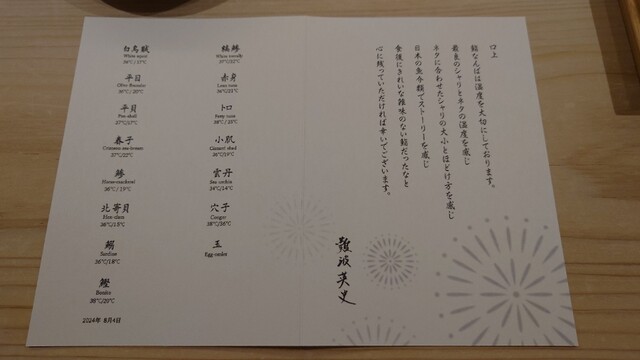 口上
鮨なんばは温度を大切にしております。
最良のシャリとネタの温度を感じ
ネタに合わせたシャリの大小とほどけ方を感じ
日本の魚今頃でストーリーを感じ
食後にきれいな雑味のない鮨だったなと
心に残っていただければ幸いでございます。
難波英史
白烏賊
White squid
36℃/17℃
平目
Olive flounder
平貝
Pen shell
37℃/17℃
春子
Crimson sea-bream
鯵
Horse-mackerel
38℃/19℃
北寄貝
Hen clam
36℃/15℃
鰯
Sardine
36℃/18℃
鰹
Bonito
38℃/20℃
2024年 8月4日
縞鯵
White trevally
37℃/22℃
赤身
Lean tuna
トロ
Fatty tuna
小肌
Gizzard shad
36℃/19℃
雲丹
Sea urchin
34℃/14℃
穴子
Conger
38℃/38℃
玉